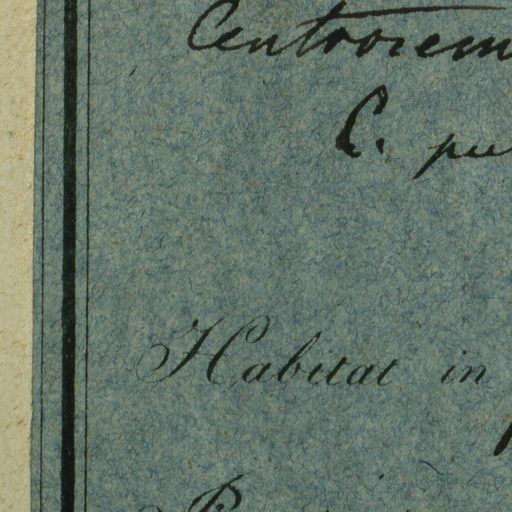 Centrosem
C. pu
Habitat in